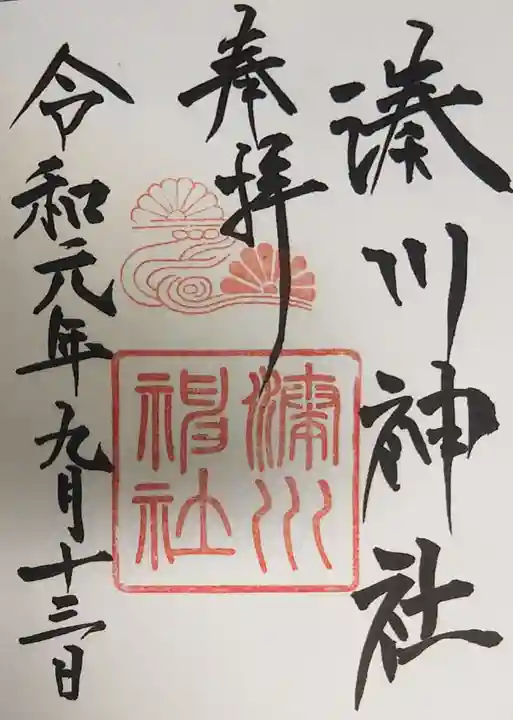 湊川神社
奉拝
湊川神社
令和元年九月十三日